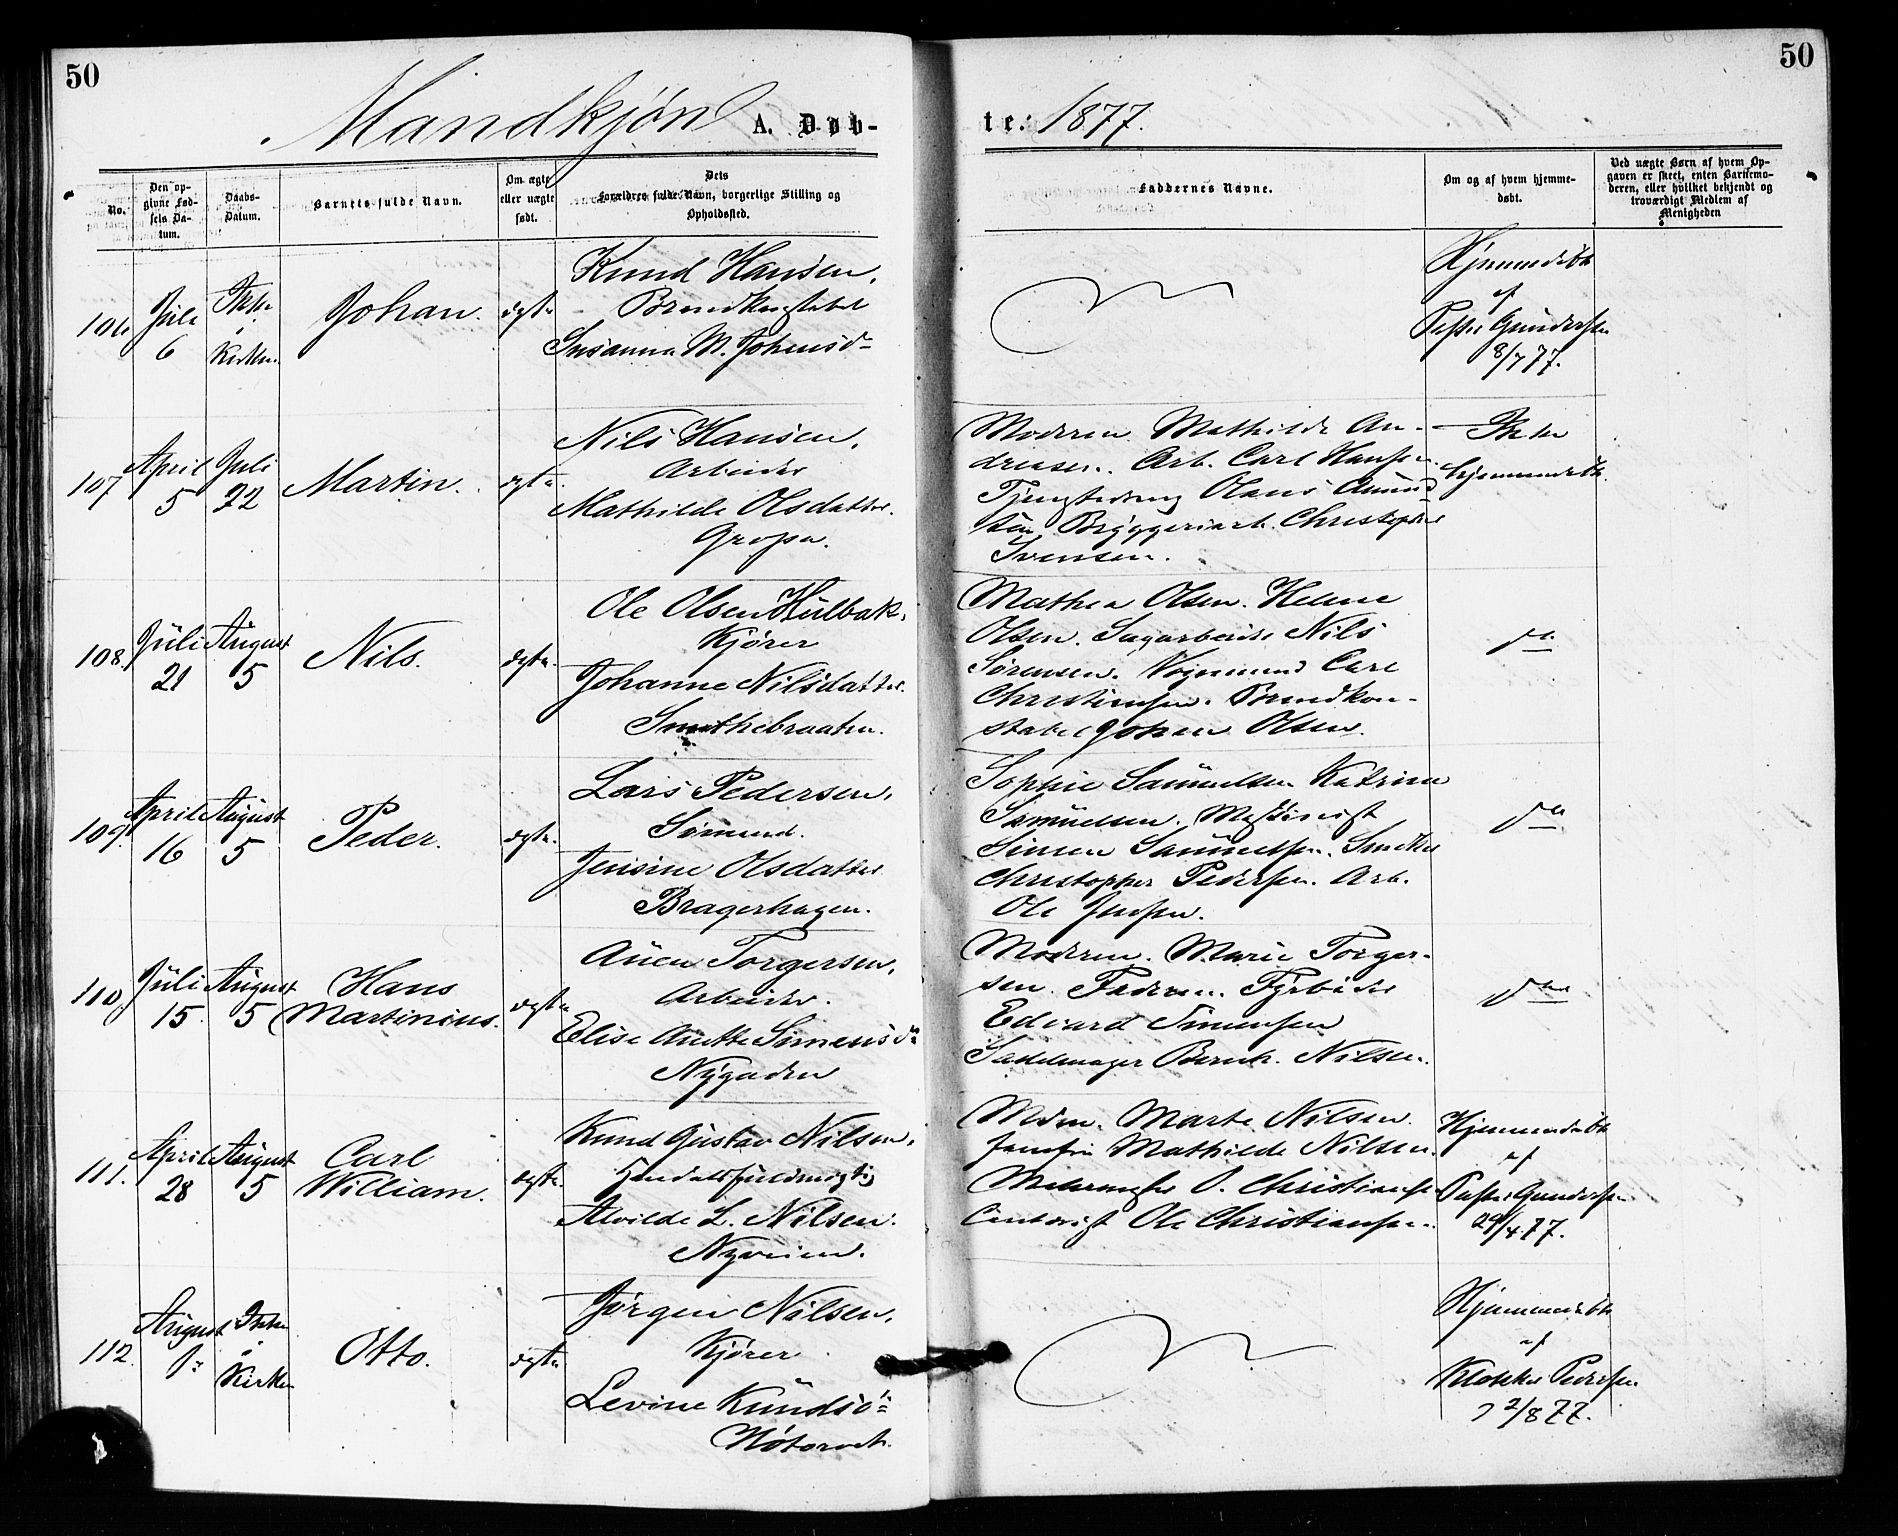 50
50
Mandkjøn A. Døb-
te: 1877.
No.
Den op-
givne Fød-
sels Da-
tum.
Daabs-
Datum.
Barnets fulde Navn.
Om ægte
eller uægte
født.
Dets
Forældres fulde Navn, borgerlige Stilling og
Opholdssted.
Faddernes Navne.
Om og af hvem hjemme-
døbt.
Ved uægte Børn af hvem Op-
gaven er skeet, enten Barnemo-
deren, eller hvilket bekjendt og
troværdigt Medlem af
Menigheden
106.
Juli
6
Ikke
i
Kirken.
Johan.
ægte
Knud Hansen.
Brandkonstabel
Susanna M. Johansd
Hjemmedøbt
af
Gundersen
8/7 77.
107
April
5
Juli
22
Martin.
ægte.
Nils Hansen.
Arbeider
Mathilde Olsdatter.
Gropa.
Moderen. Mathilde An-
dreasen. Arb. Carl Hansen.
Tjenstedreng Olaus Amund
sen Bryggeriarb. Christopher
Svensen.
Ikke
hjemmedøbt.
108.
Juli
21
August
5
Nils.
ægte.
Ole Olsen Hulbak.
Kjører
Johanne Nilsdatter.
Smithebraaten.
Mathea Olsen. Helene
Olsen. Sagarbeider Nils
Sørensen. Vognmand Carl
Christiansen. Brandkon-
stabel Johan Olsen.
do
109.
April
16
August
5
Peder.
ægte.
Lars Pedersen.
Sømand.
Jensine Olsdatter
Bragerhagen.
Sophie Samuelsen Katrine
Samuelsen. Maskinist
Simen Samuelsen. Smed
Christopher Pedersen. Arb.
Ole Jensen.
do
110.
Juli
15.
August
5
Hans
Martinius.
ægte
Auen Torgersen.
Arbeider.
Elise Anette Simensd
Nygaden
Moderen. Marie Torger-
sen. Faderen. Fyrbøder
Edvard Simensen
Sadelmager Bernh. Nilsen.
do
111.
April
28
August
5
Carl
William.
ægte.
Knud Gustav Nilsen.
Handelsfuldmægtig
Alvilde L. Nilsen.
Nyveien.
Modn. Marte Nilsen.
Jomfru Mathilde Nilsen.
O. Christiansen
Ole Christiansen.
Hjemmedøbt
af
Gundersen
29/4 77.
112.
August
Ikke
i
Kirken
Otto.
ægte
Jørgen Nilsen.
Kjører
Levine Knudsd
Høtorvet.
Hjemmedøbt
af
Klokker Pedersen
2/8 77.